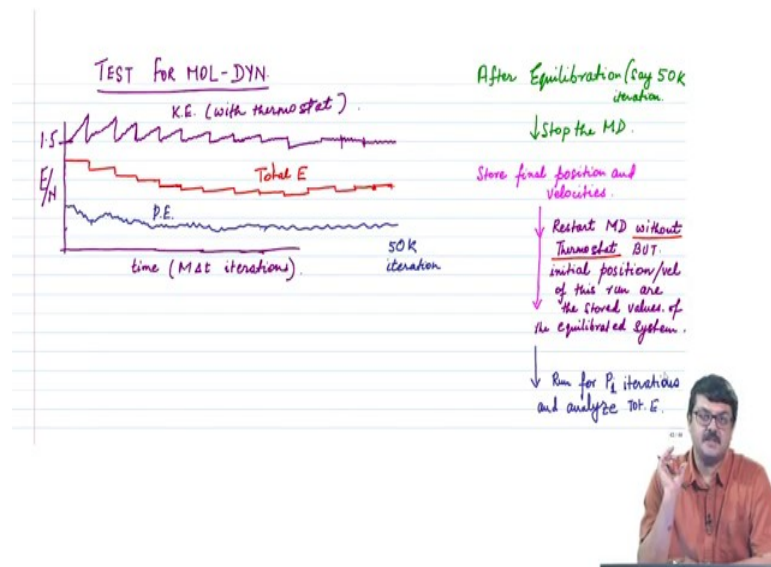 TEST FOR MOL-DYN.
K.E. (with thermostat).
1.5
E/N
Total E
P.E.
time (MΔt iterations).
50K
iteration
After Equilibration (say 50K
iteration.
↓ Stop the MD.
Store final position and
velocities.
Restart MD without
Thermostat BUT.
initial position/vel
of this run are
the stored values of
the equilibrated system.
↓ Run for P₁ iterations
and analyze TOT. E.